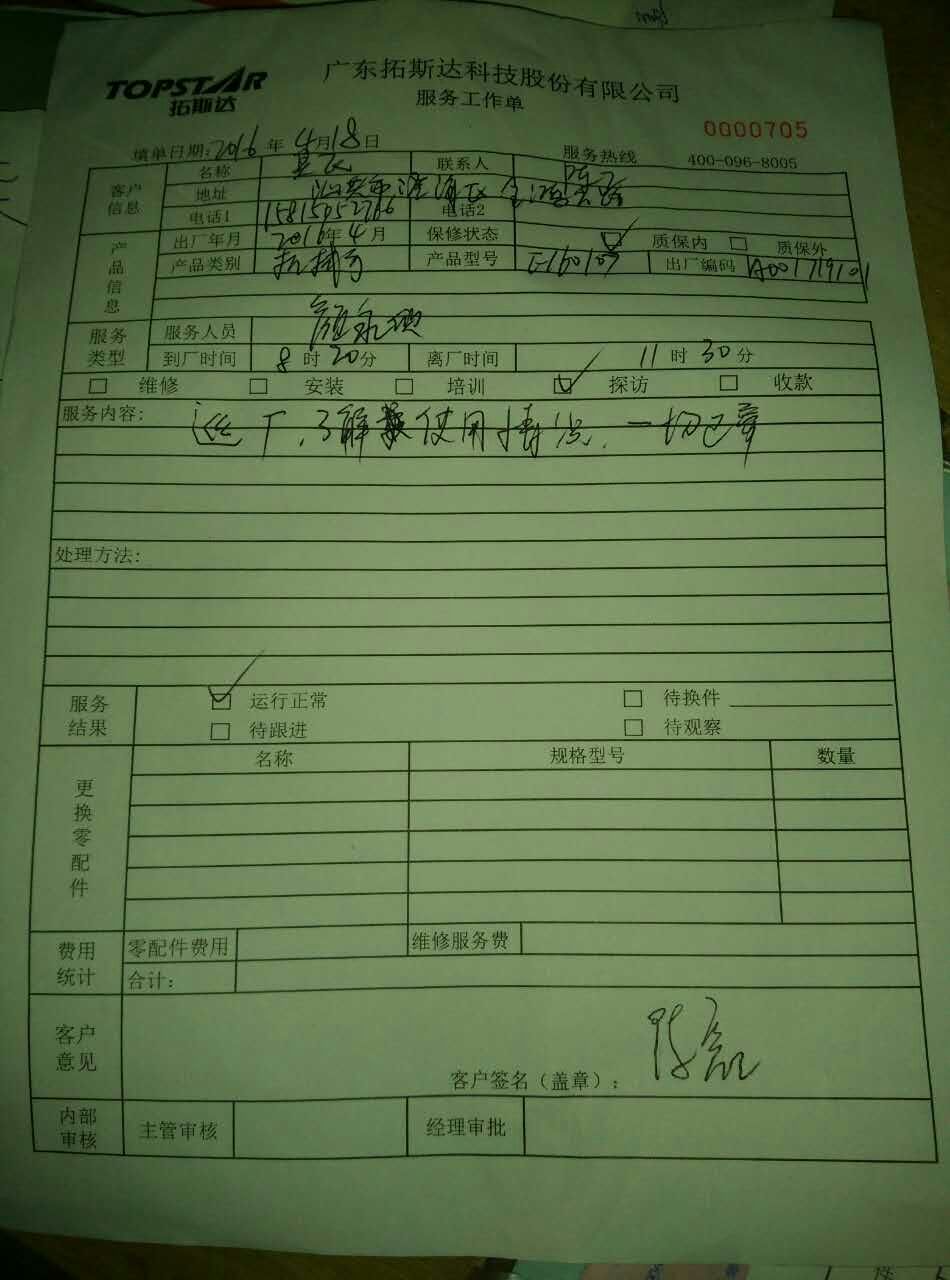 TOPSTAR
拓斯达
广东拓斯达科技股份有限公司
服务工作单
0000705
填单日期:2016年4月18日
服务热线 400-096-8005
客户信息 名称 联系人 陈
地址
电话1 电话2
产品信息 出厂年月 2016年4月 保修状态 质保内 质保外
产品类别 机械手 产品型号 出厂编码
服务类型 服务人员
到厂时间 8时20分 离厂时间 11时30分
维修 安装 培训 探访 收款
服务内容: 巡厂,了解使用情况,一切正常
处理方法:
服务结果 运行正常 待换件
待跟进 待观察
更换零配件 名称 规格型号 数量
费用统计 零配件费用 维修服务费
合计:
客户意见
客户签名(盖章): 陈
内部审核 主管审核 经理审批